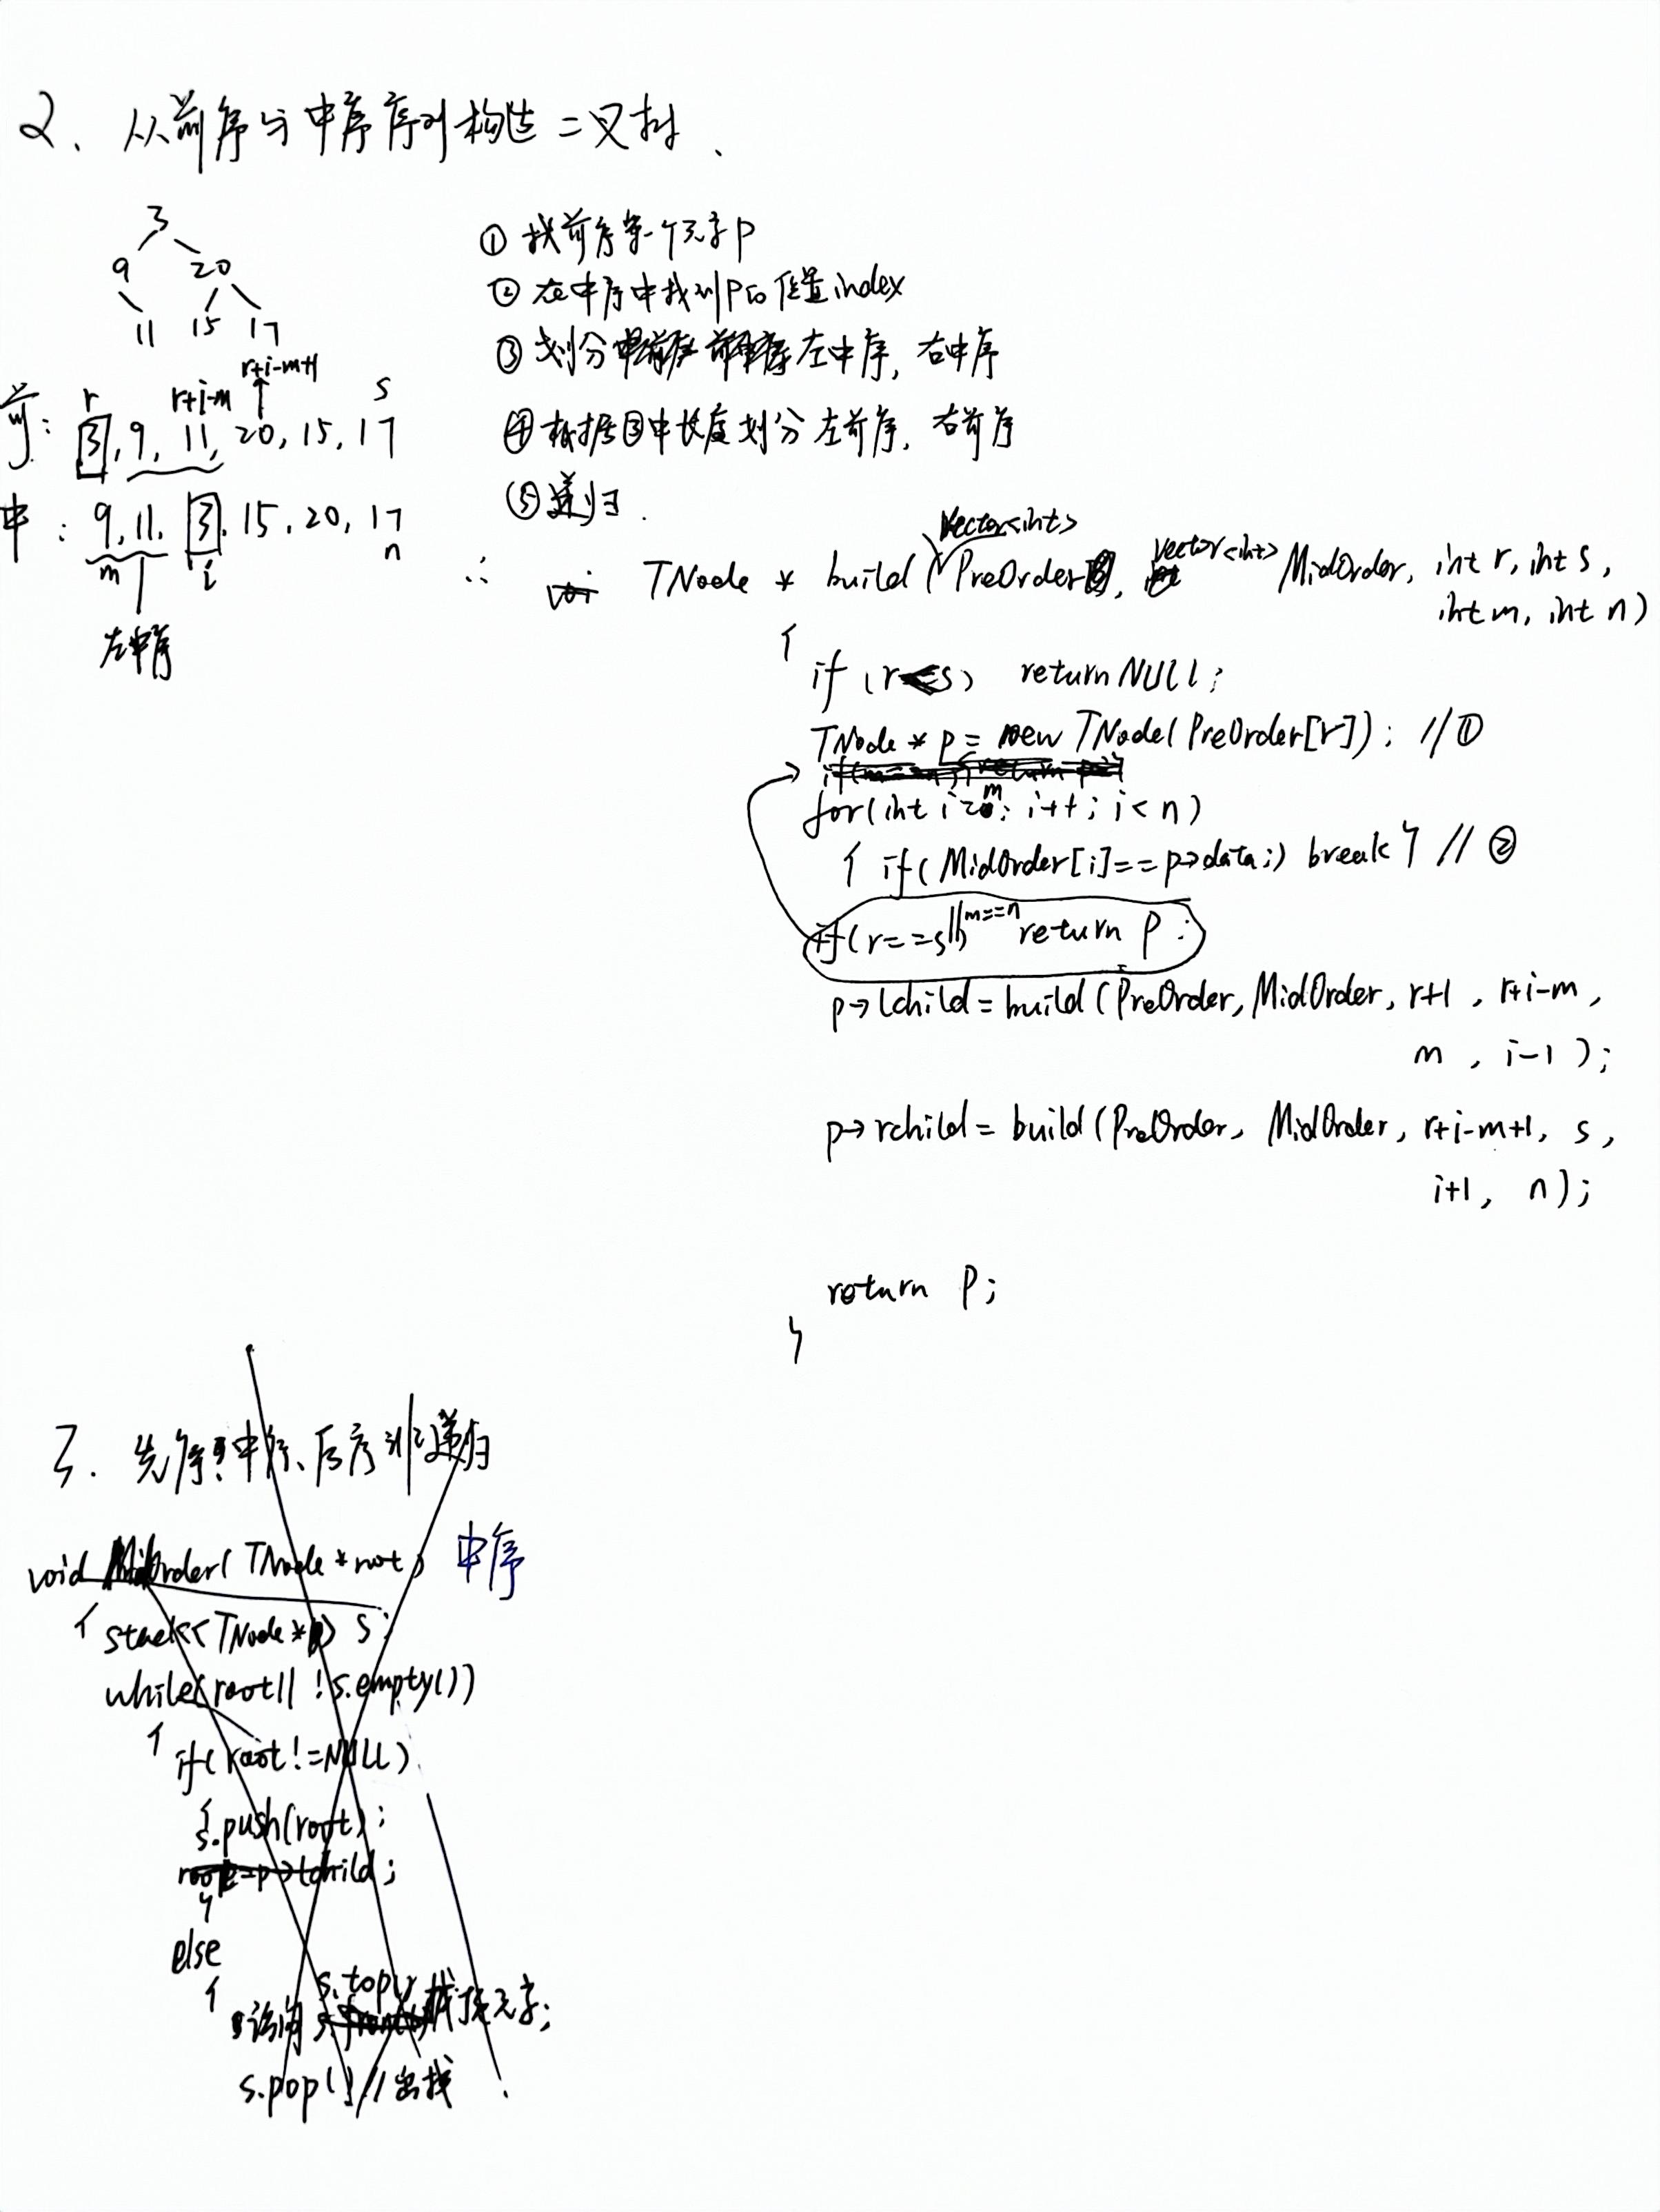 2、从前序与中序序列构造二叉树、
3
9 20
11 15 17
r r+i-m r+i-m+1 s
前: 3, 9, 11, 20, 15, 17
中: 9, 11, 3, 15, 20, 17
m i n
左中序
① 找前序第一个元素P
② 在中序中找到P的位置index
③ 划分左中序, 右中序
④ 根据③中长度划分左前序, 右前序
⑤ 递归.
∴ TNode * build(vector<int> PreOrder, vector<int> MidOrder, int r, int s,
int m, int n)
{
if (r s) return NULL;
TNode * p = new TNode(PreOrder[r]); //①
for(int i=m; i++; i<n)
{ if(MidOrder[i]==p->data;) break } //②
if(r==s||m==n) return p;
p->lchild=build(PreOrder, MidOrder, r+1, r+i-m,
m, i-1);
p->rchild=build(PreOrder, MidOrder, r+i-m+1, s,
i+1, n);
return p;
}
3. 先序、中序、后序非递归
void MidOrder(TNode *root) 中序
{ stack<TNode*> s;
while(root|| !s.empty())
{ if(root!=NULL)
{
s.push(root);
root=p->lchild;
}
else
{
访问 s.top() 栈顶元素;
s.pop() //出栈